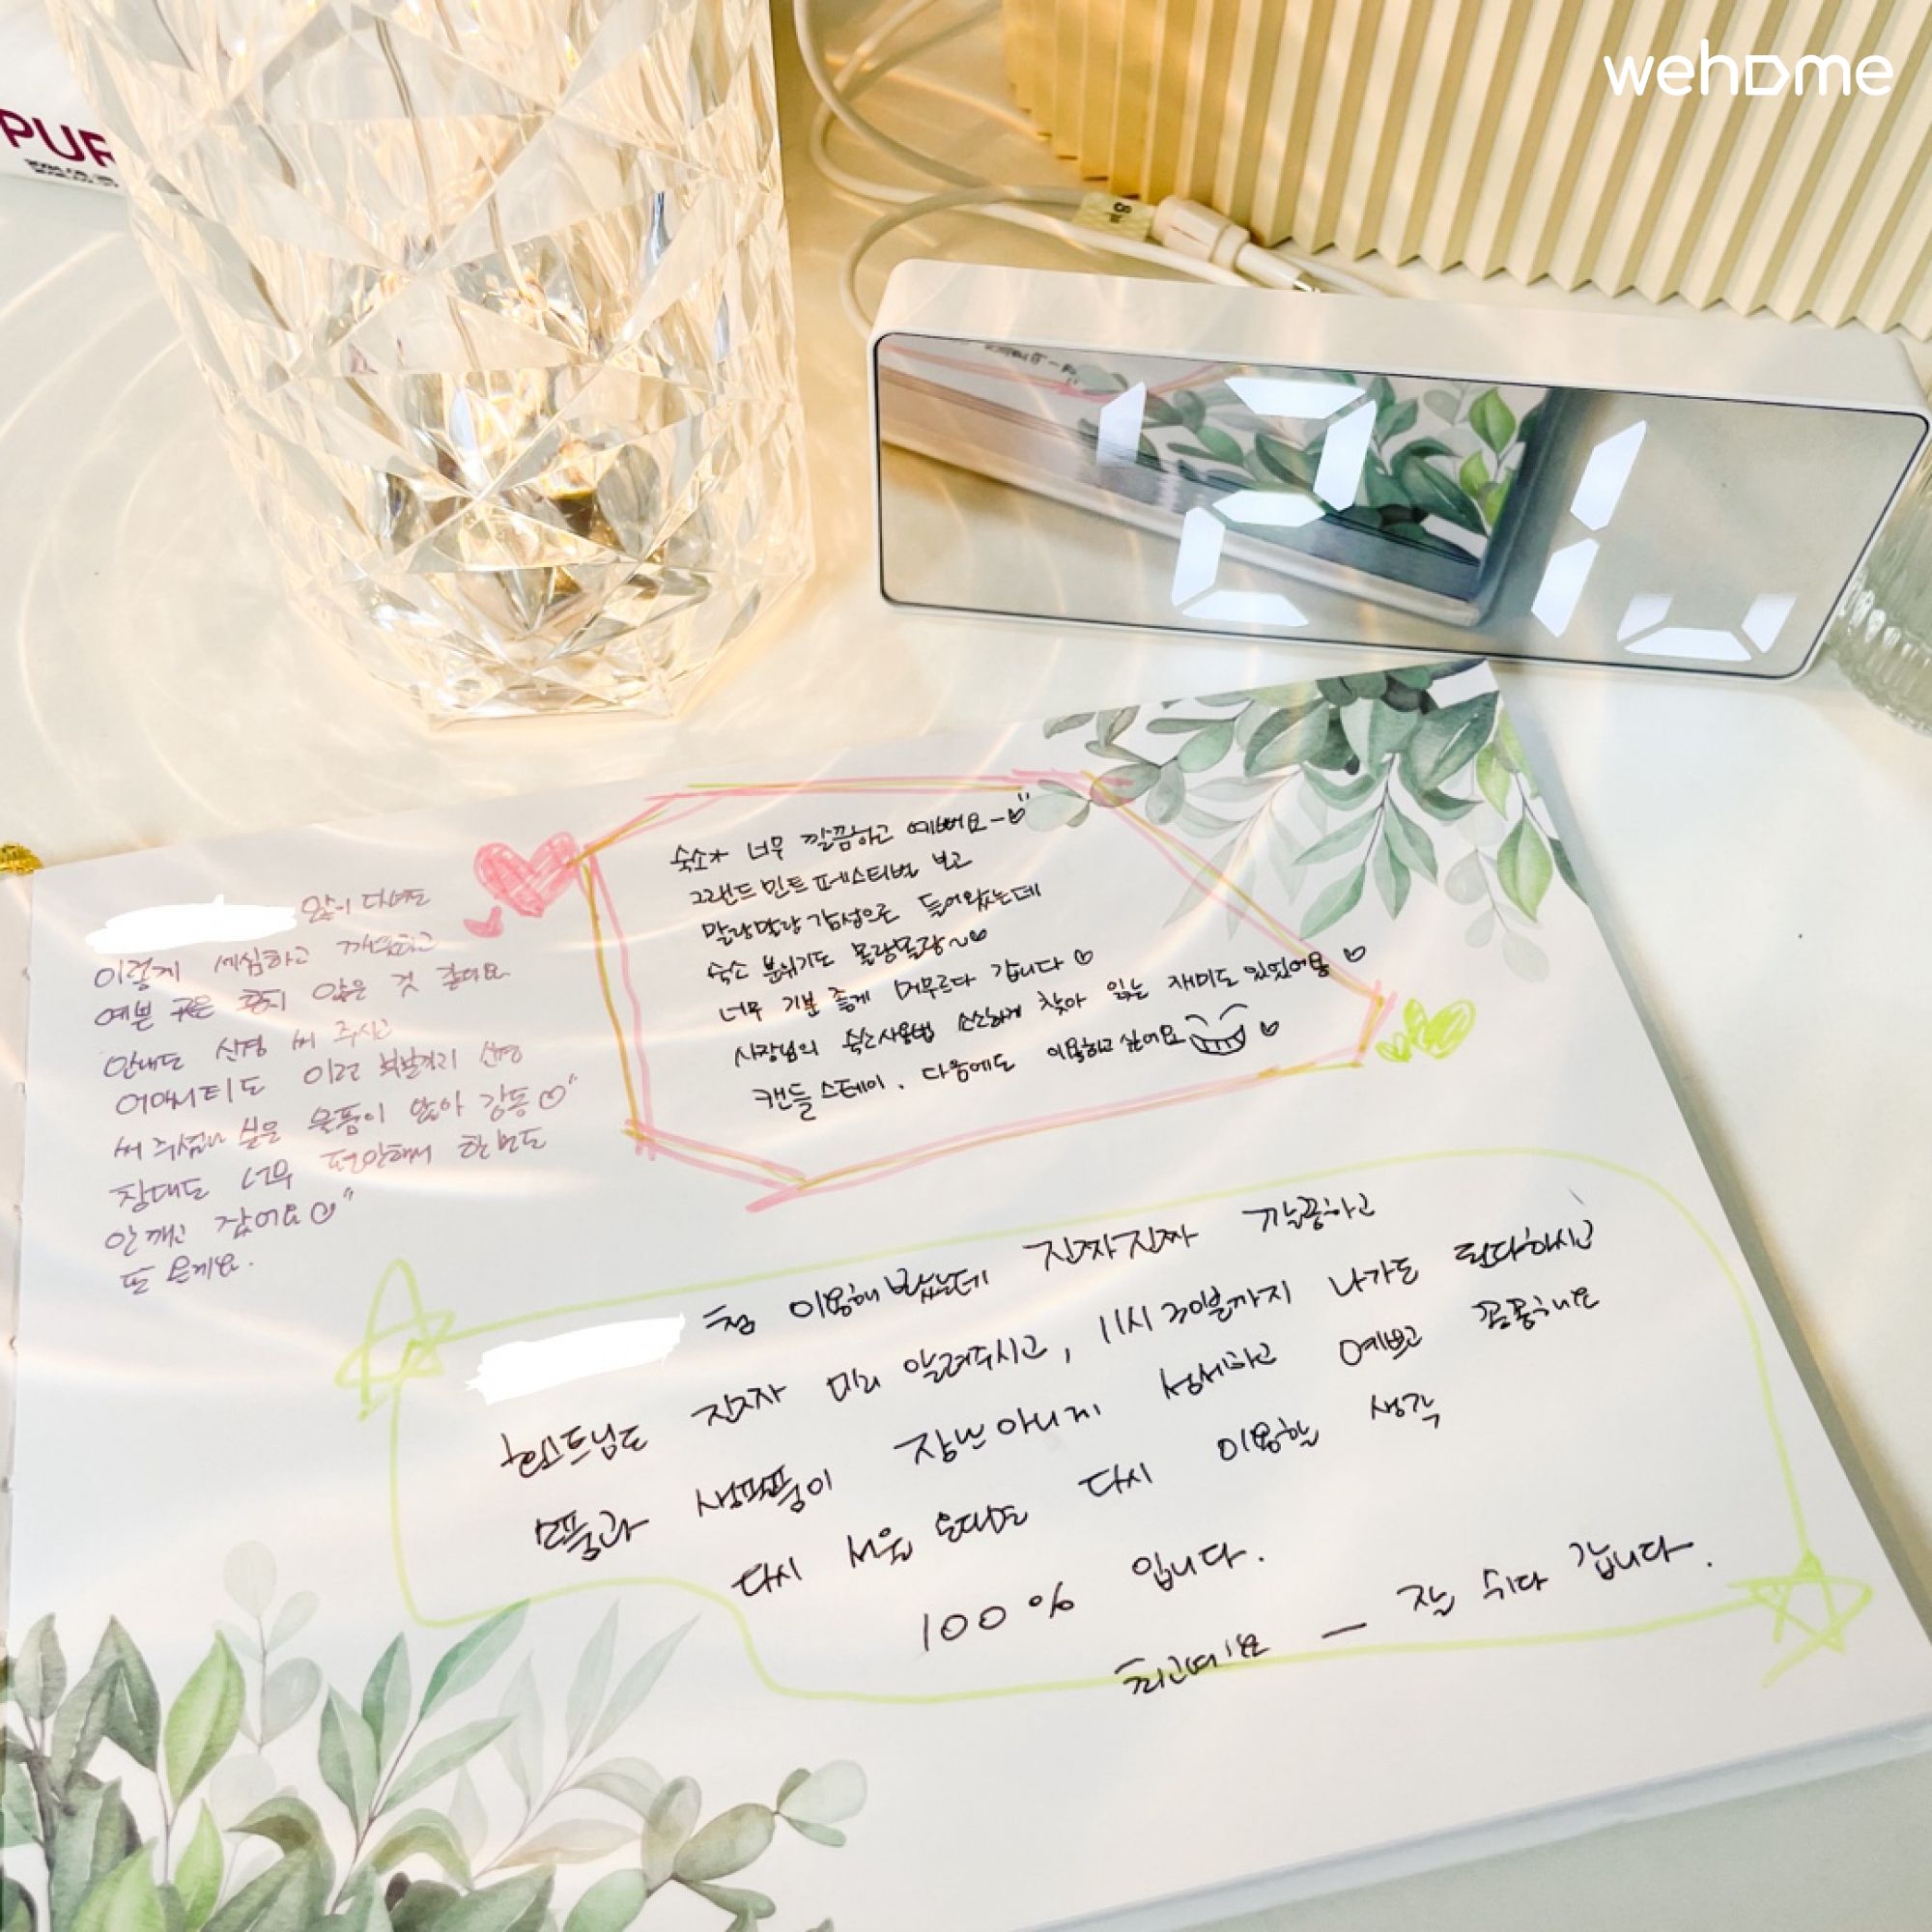 wehome
PUR
많이 다녀도
이렇게 세심하고 깨끗하고
예쁜 곳은 흔치 않은 것 같아요
안내도 신경 써 주시고
어매니티도 이런 신경
써 주셨나 싶은 물품이 많아 감동♡"
침대도 너무 편안해서 한번도
안 깨고 잤어요♡"
또 올게요.
숙소가 너무 깔끔하고 예뻐요-♡"
그랜드 민트 페스티벌 보고
말랑말랑 감성으로 들어왔는데
숙소 분위기도 몰랑몰랑~♡
너무 기분 좋게 머무르다 갑니다 ♡
사장님의 숙소사용법 소소하게 찾아 읽는 재미도 있었어용 ♡
캔들 스테이. 다음에도 이용하고 싶어요 ♡
첨 이용해 봤는데 진짜진짜 깔끔하고
호스트님도 진짜 미리 알려주시고, 11시 30분까지 나가도 된다하시고
소품과 생필품이 장난아니게 섬세하고 예쁘고 꼼꼼해요
다시 서울 온대도 다시 이용할 생각
100% 입니다.
최고예요 — 잘 쉬다 갑니다.